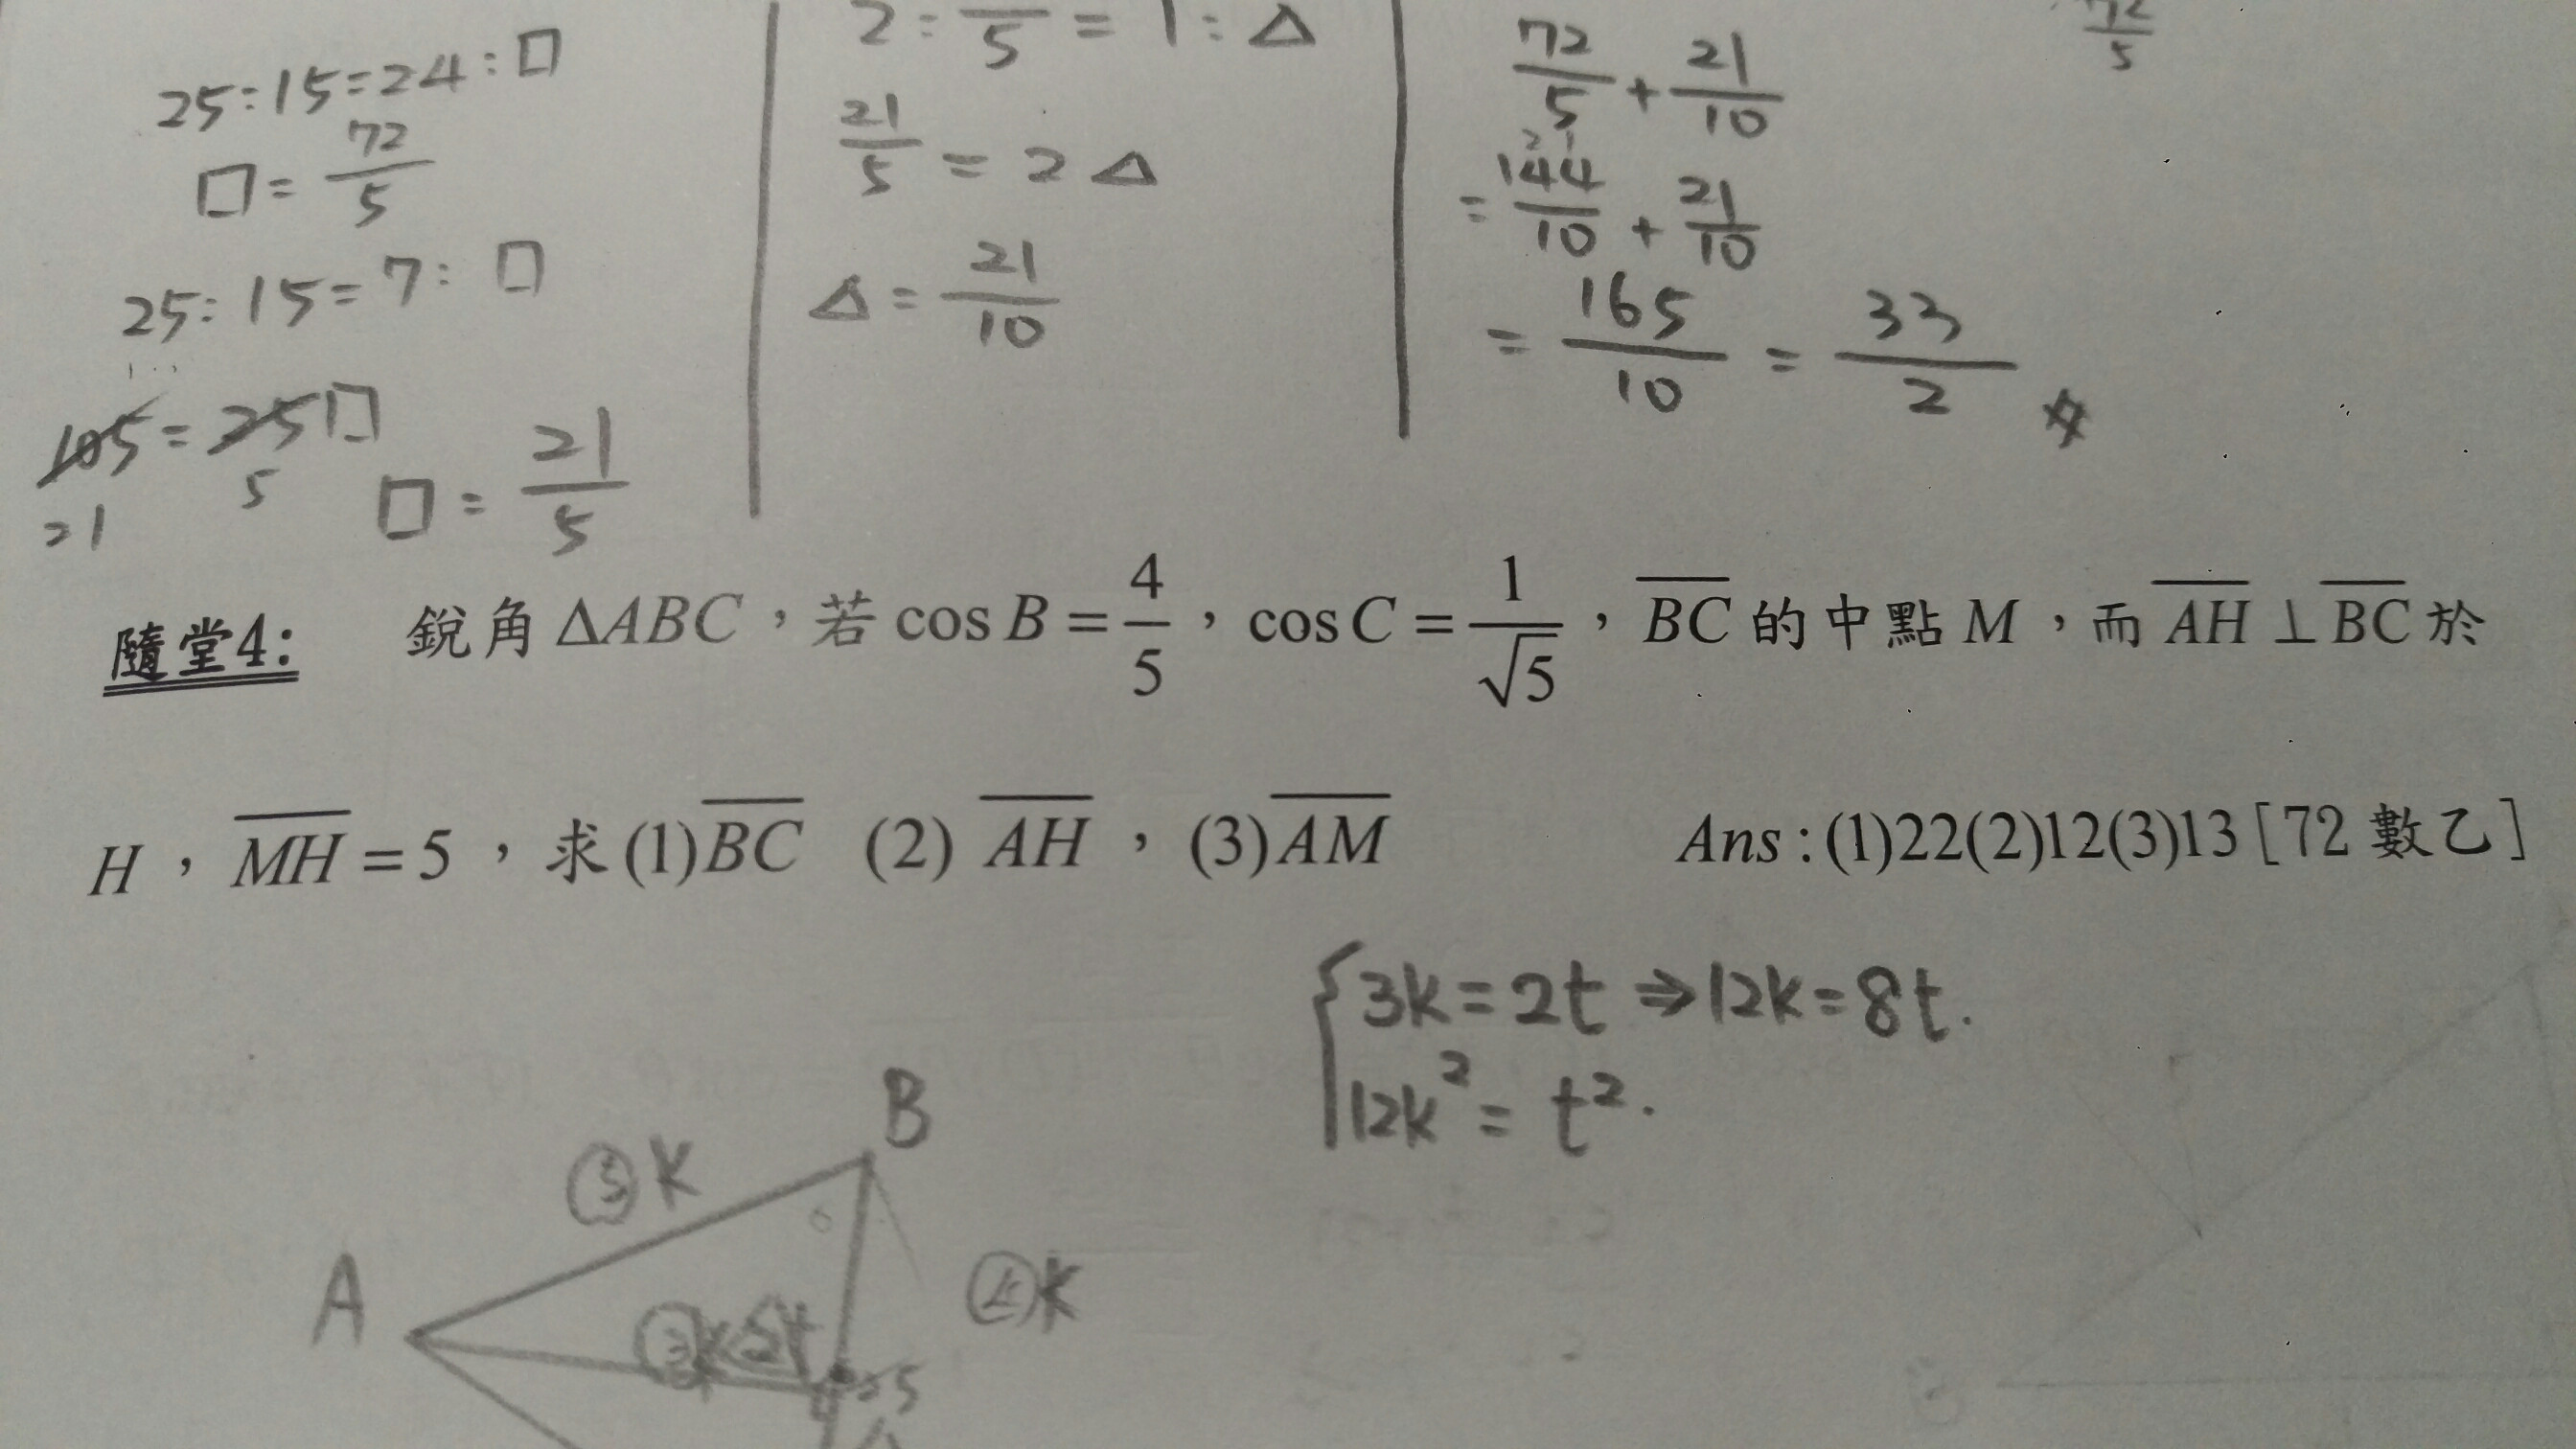 25:15=24:□
□=72/5
25:15=7:□
105=25□
21 5
□=21/5
21/5=2△
△=21/10
72/5+21/10
=144/10+21/10
=165/10=33/2
72/5
隨堂4: 銳角ΔABC，若cos B=4/5，cos C=1/√5，BC的中點M，而AH⊥BC於
H，MH=5，求(1)BC (2) AH，(3)AM Ans:(1)22(2)12(3)13[72數乙]
3k=2t⇒12k=8t.
12k²=t².
B
⑤k
A
④k
③k 2t
5